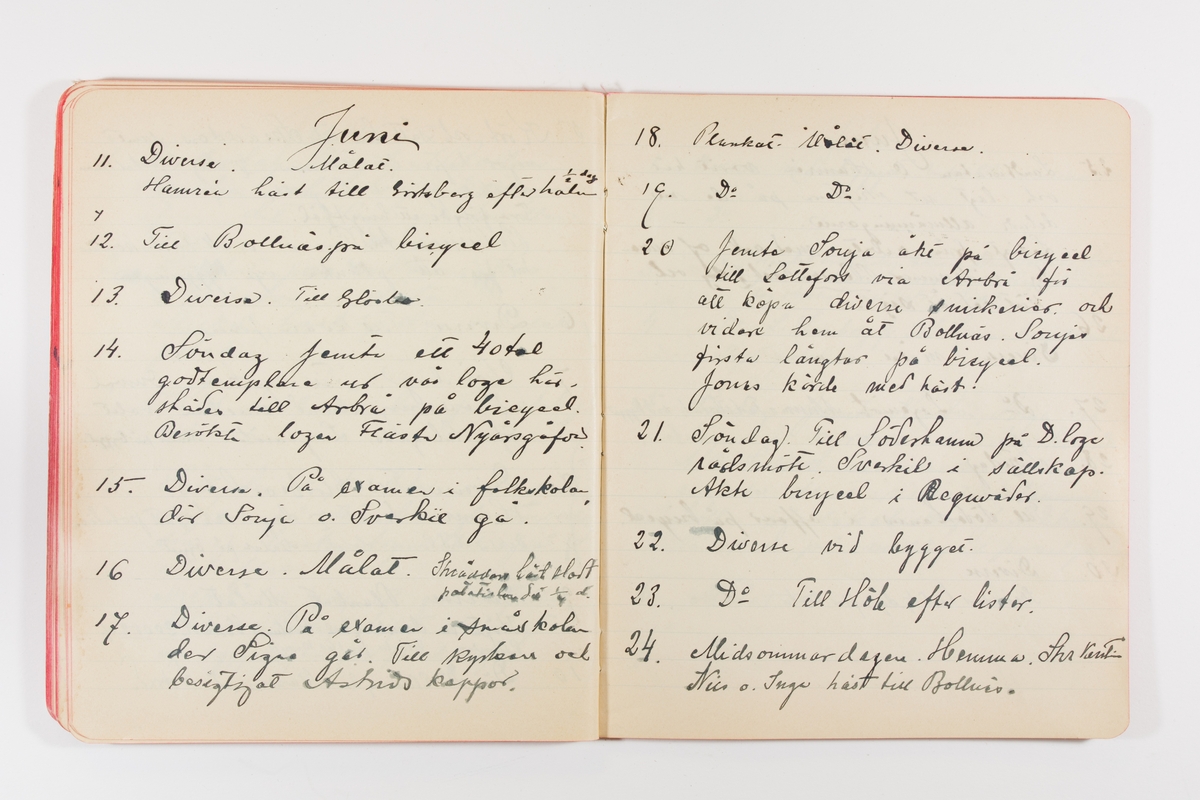 Juni
11. Diverse. Målat.
häst till efter halm 1/2 dag
12. Till Bollnäs på bicycel
13. Diverse. Till
14. Söndag. Jemte ett 40 tal
godtemplare ur vår loge här-
städes till Arbrå på bicycel.
Besökte logen Flästa Nyårsgåfva.
15. Diverse. På examen i folkskolan
där Sonja o. Sverkil gå.
16 Diverse. Målat. häst
1/4 d.
17. Diverse. På examen i småskolan
der Signe gåt. Till kyrkan och
besigtigat Astrids kappor.
18. Plankat. Målat. Diverse.
19. Do Do
20 Jemte Sonja åkt på bicycel
till Lottefors via Arbrå för
att köpa diverse snickerier och
vidare hem åt Bollnäs. Sonjas
första långtur på bicycel.
Jonas körde med häst.
21. Söndag. Till Söderhamn på D. loge
rådsmöte. Sverkil i sällskap.
Åkte bicycel i Regnväder.
22. Diverse vid bygget.
23. Do Till Höle efter lister.
24. Midsommardagen. Hemma.
Nils o. Inga häst till Bollnäs.